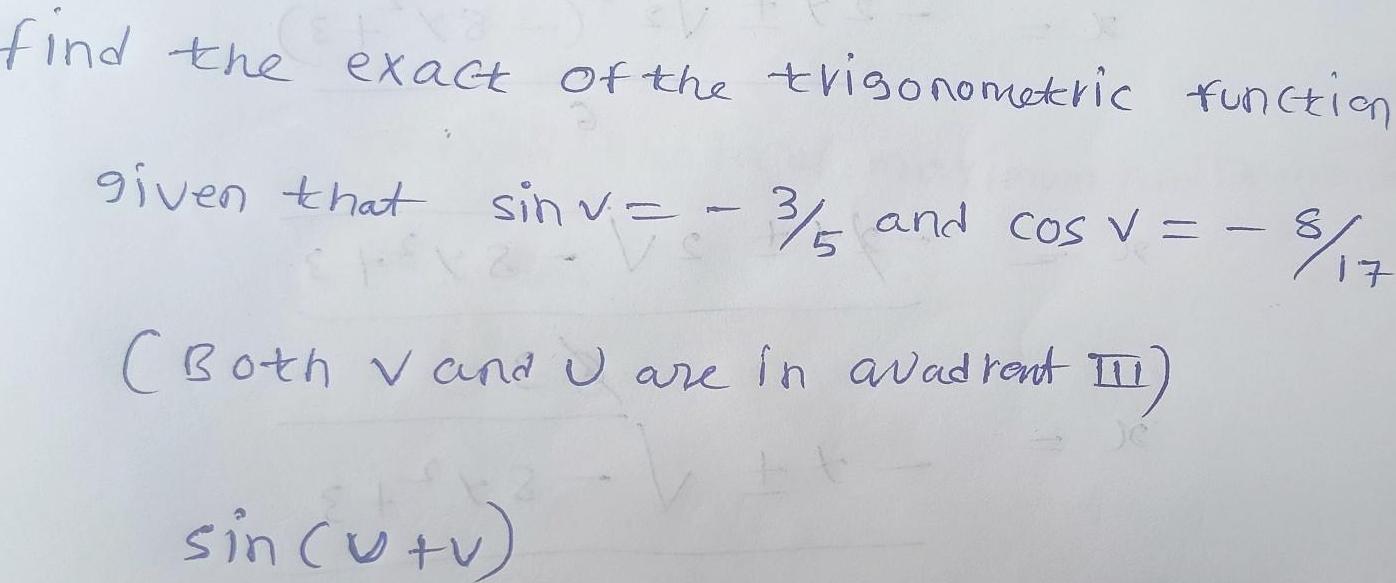 find the exact of the trigonometric function
given that sin v = - 3/5 and cos v = - 8/17
(Both v and U are in avadrent III)
sin(u+v)